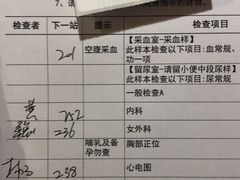 检查者 下一站 提示 检查项目
201 空腹采血 【采血室-采血样】
此样本检查以下项目:血常规、
功一项
【留尿室-请留小便中段尿样】
此样本检查以下项目:尿常规
一般检查A
252 内科
236 女外科
哺乳及备
孕勿查 胸部正位
238 心电图